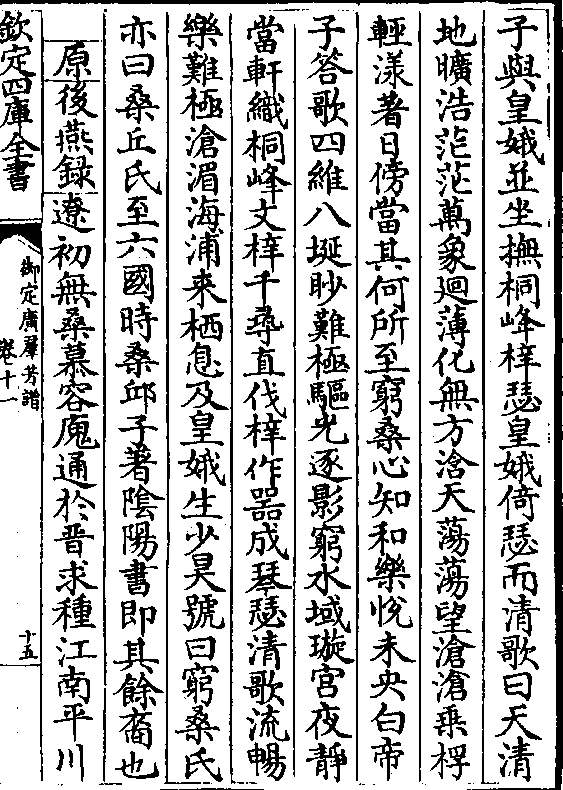 子與皇娥並坐撫桐峰梓瑟皇娥倚瑟而清歌曰天清
地曠浩茫茫萬象迴薄化無方浛天蕩蕩望滄滄乘桴
輕漾著日傍當其何所至窮桑心知和樂悅未央白帝
子答歌四維八埏眇難極驅光逐影窮水域璇宮夜靜
當軒織桐峰文梓千尋直伐梓作器成琴瑟清歌流暢
樂難極滄湄海浦來栖息及皇娥生少昊號曰窮桑氏
亦曰桑丘氏至六國時桑邱子著陰陽書即其餘裔也
原後燕録遼初無桑慕容廆通於晉求種江南平川
欽定四庫全書
御定廣羣芳譜
卷十一
十五